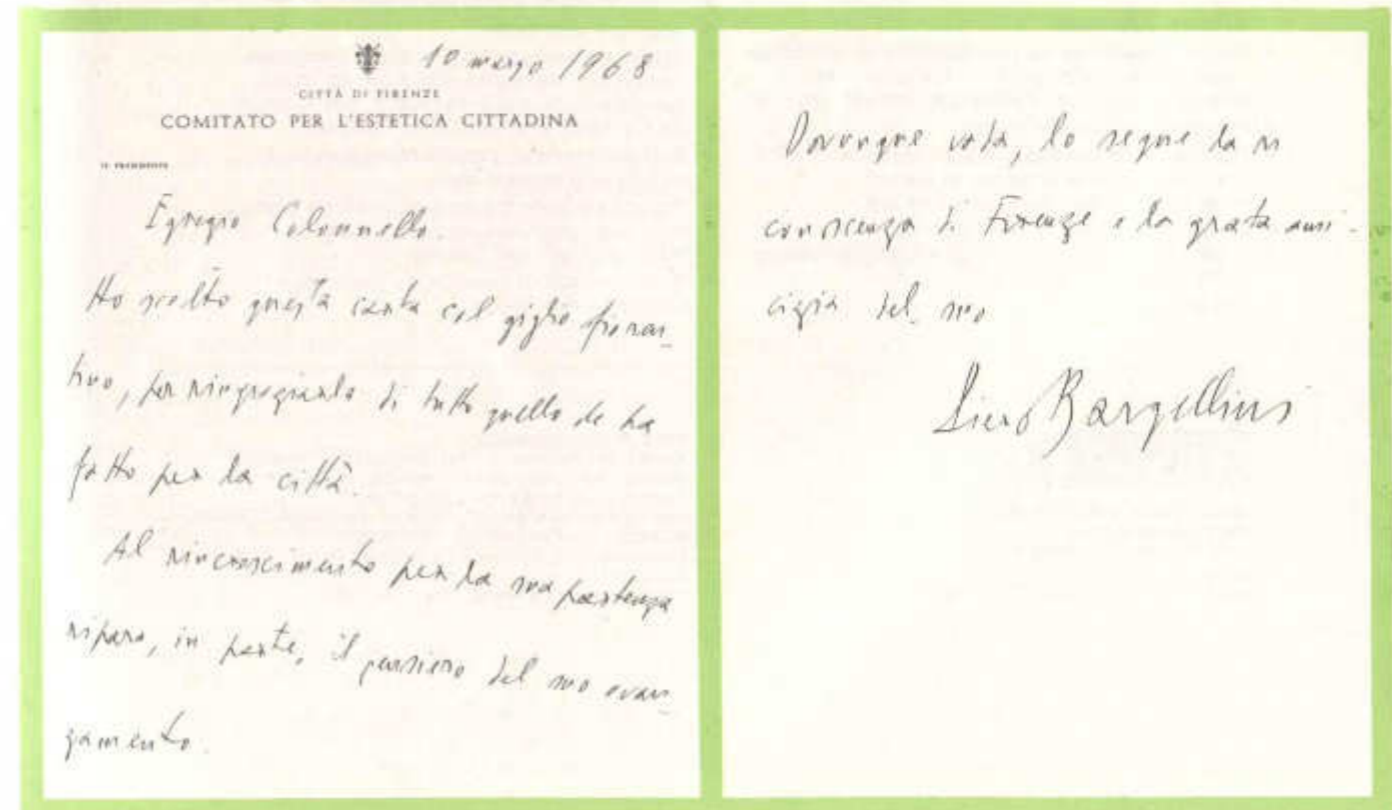 10 marzo 1968
CITTÀ DI FIRENZE
COMITATO PER L'ESTETICA CITTADINA
IL PRESIDENTE
Egregio Colonnello.
Ho scelto questa carta col giglio fioren-
tino, per ringraziarlo di tutto quello che ha
fatto per la città.
Al rincrescimento per la sua partenza
ripara, in parte, il pensiero del suo avan-
zamento.
Dovunque vada, lo segue la ri
conoscenza di Firenze e la grata ami-
cizia del suo
Piero Bargellini